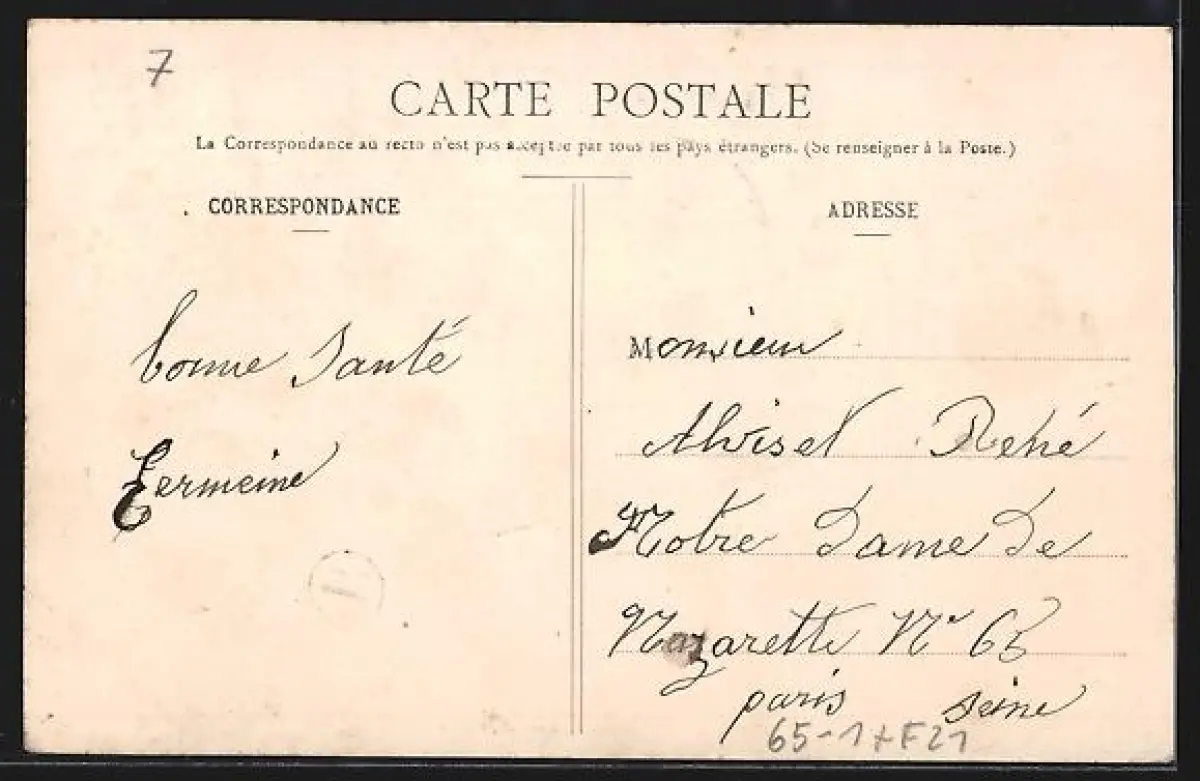 7
CARTE POSTALE
La Correspondance au recto n'est pas acceptée par tous les pays étrangers. (Se renseigner à la Poste.)
CORRESPONDANCE
ADRESSE
bonne Santé
Germeine
Monsieur
Alviset René
Notre Dame De
Nazarette No 65
paris Seine
65-1+F21